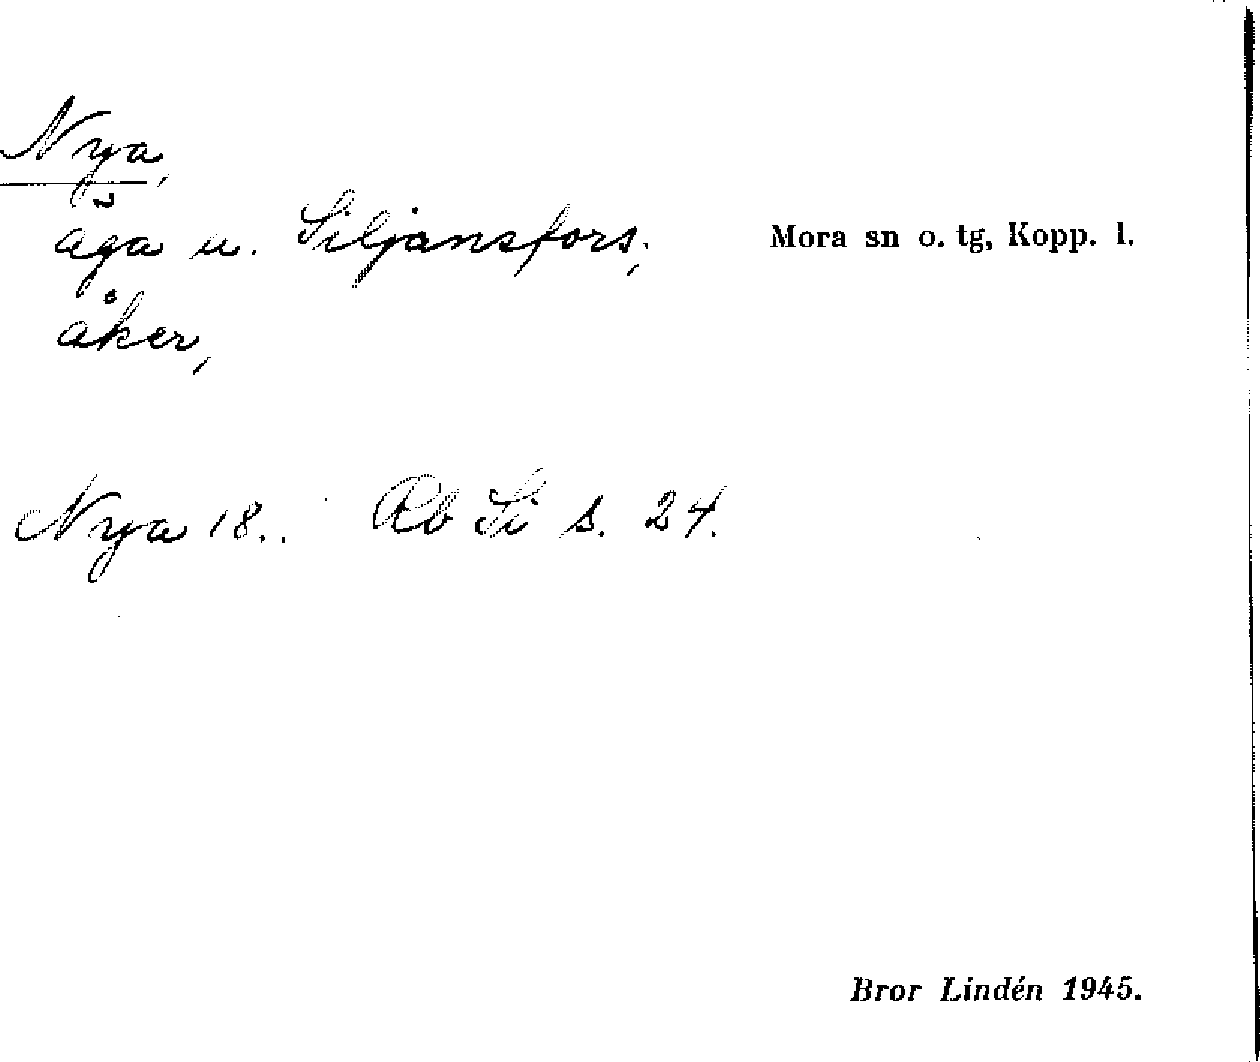 Nya,
äga u. Siljansfors, Mora sn o. tg, Kopp. l.
åker,
Nya 18.. Rb Si s. 24.
Bror Lindén 1945.